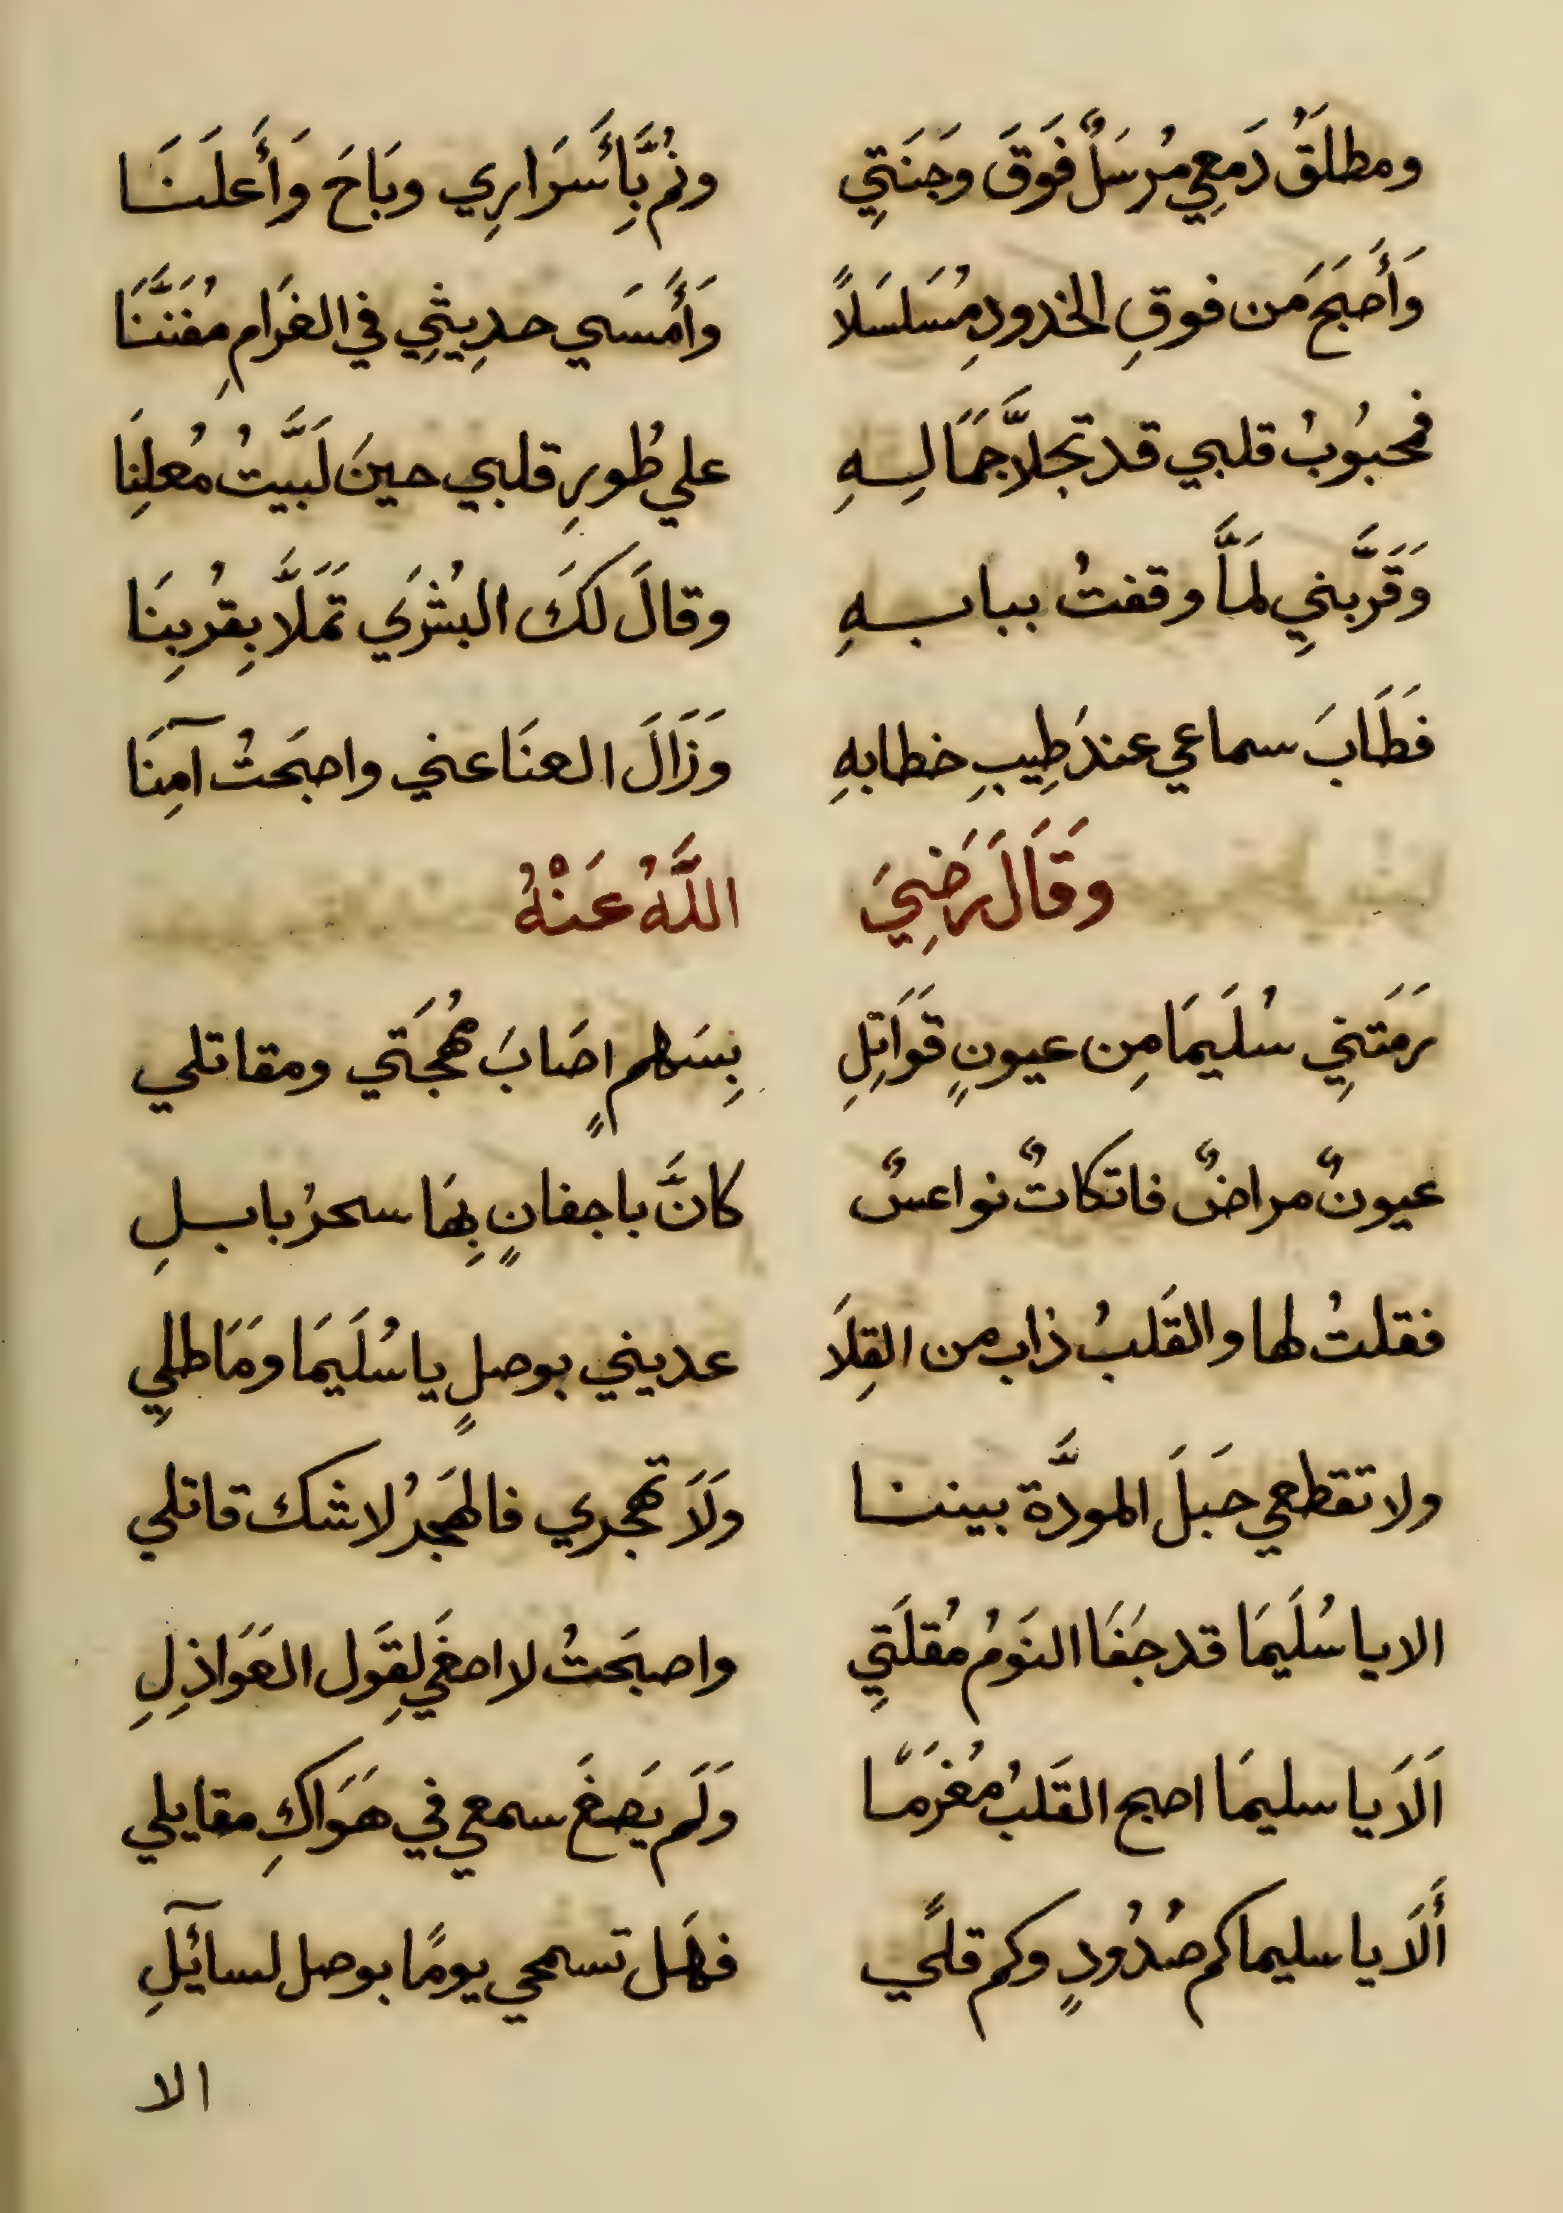 ومطلَقُ دَمعِي مُرسَلٌ فَوَقَ وَجنَتِي ونُمَّ بِأَسَرَارِي وبَاحَ وَأَعلَنَا
وَأَصبَحَ مَن فوقِ الخدودِ مُسَلسَلاً وَأَمسَي حدِيثِي في الغرَامِ مُفَنَّنَا
فمحبُوبُ قلبي قد تجلاَّ جمَالِهِ علي طُورِ قلبي حينَ لَبَّيتُ مُعلِنَا
وَقَرَّبنِي لمَاَّ وقفتُ ببابهِ وقالَ لكَ البُشرَي تَمَلَّا بِقُربِنَا
فَطَابَ سماعي عندَ طِيبِ خطابهِ وَزَالَ العنَا عني واصبَحتُ آمِنَا
وَقَالَ رَضِيَ اللَّهُ عَنْهُ
رَمَتنِي سُلَيمَا مِن عيونٍ قَوَاتِلِ بِسَهمٍ اصَابَ مُهجَتَي ومقاتلي
عيونٌ مراضٌ فاتكاتٌ نواعسٌ كانَّ باجفانٍ بِهَا سحرُ بابلِ
فقلتُ لها والقَلبُ ذاب من القِلَا عديني بوصلٍ يا سُلَيمَا ومَاطلِي
ولا تقطعي حَبلَ المودَّة بيننا ولَا تهجري فالهَجرُ لا شك قاتلي
الا يا سُلَيمَا قد جَفَا النَومُ مُقلَتِي واصبَحتُ لا اصغَي لِقَول العَوَاذِلِ
اَلَا يا سليمَا اصبح القَلبُ مُغرَمًا وَلَم يَصغَ سمعي في هَوَاكِ مقايلي
أَلَا يا سليما كم صُدُودٍ وكم قلًي فهَل تسمحي يومًا بوصل لسائلِ
الا